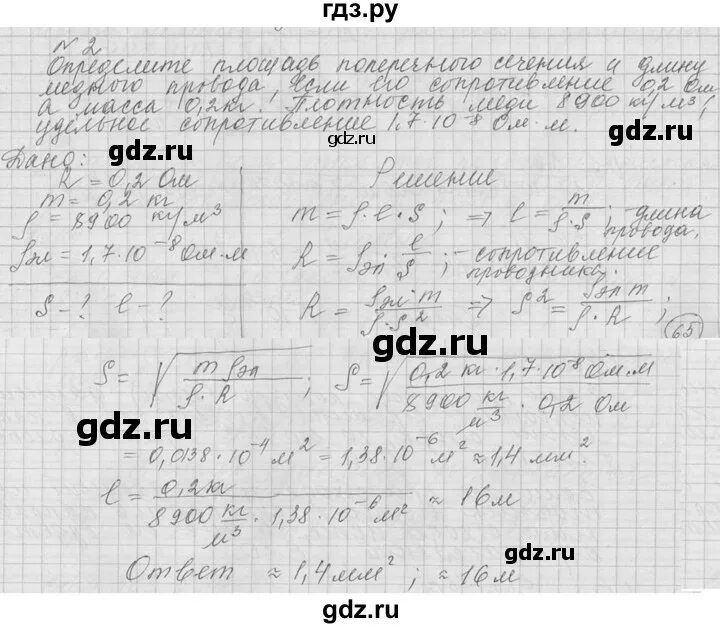 гдз.ру
№2
Определите площадь поперечного сечения и длину
медного провода, если его сопротивление 0,2 Ом
а масса 0,2 кг. Плотность меди 8900 кг/м³,
удельное сопротивление 1,7·10⁻⁸ Ом·м.
gdz.ru
gdz.ru
Дано:
R = 0,2 Ом
m = 0,2 кг
ρ = 8900 кг/м³
ρэл = 1,7·10⁻⁸ Ом·м
S - ? l - ?
Решение
m = ρ·l·S; => l = m/(ρ·S); - длина провода.
R = ρэл l/S; - сопротивление проводника.
R = ρэл·m/(ρ·S²) => S² = ρэл m/(ρ·R);
65
gdz.ru
gdz.ru
S = √(m ρэл/(ρ·R)); S = √(0,2 кг·1,7·10⁻⁸ Ом·м/(8900 кг/м³·0,2 Ом))
gdz.ru
gdz.ru
= 0,0138·10⁻⁴ м² = 1,38·10⁻⁶ м² ≈ 1,4 мм².
l = 0,2 кг/(8900 кг/м³·1,38·10⁻⁶ м²) ≈ 16 м
gdz.ru
Ответ ≈ 1,4 мм²; ≈ 16 м
gdz.ru
gdz.ru